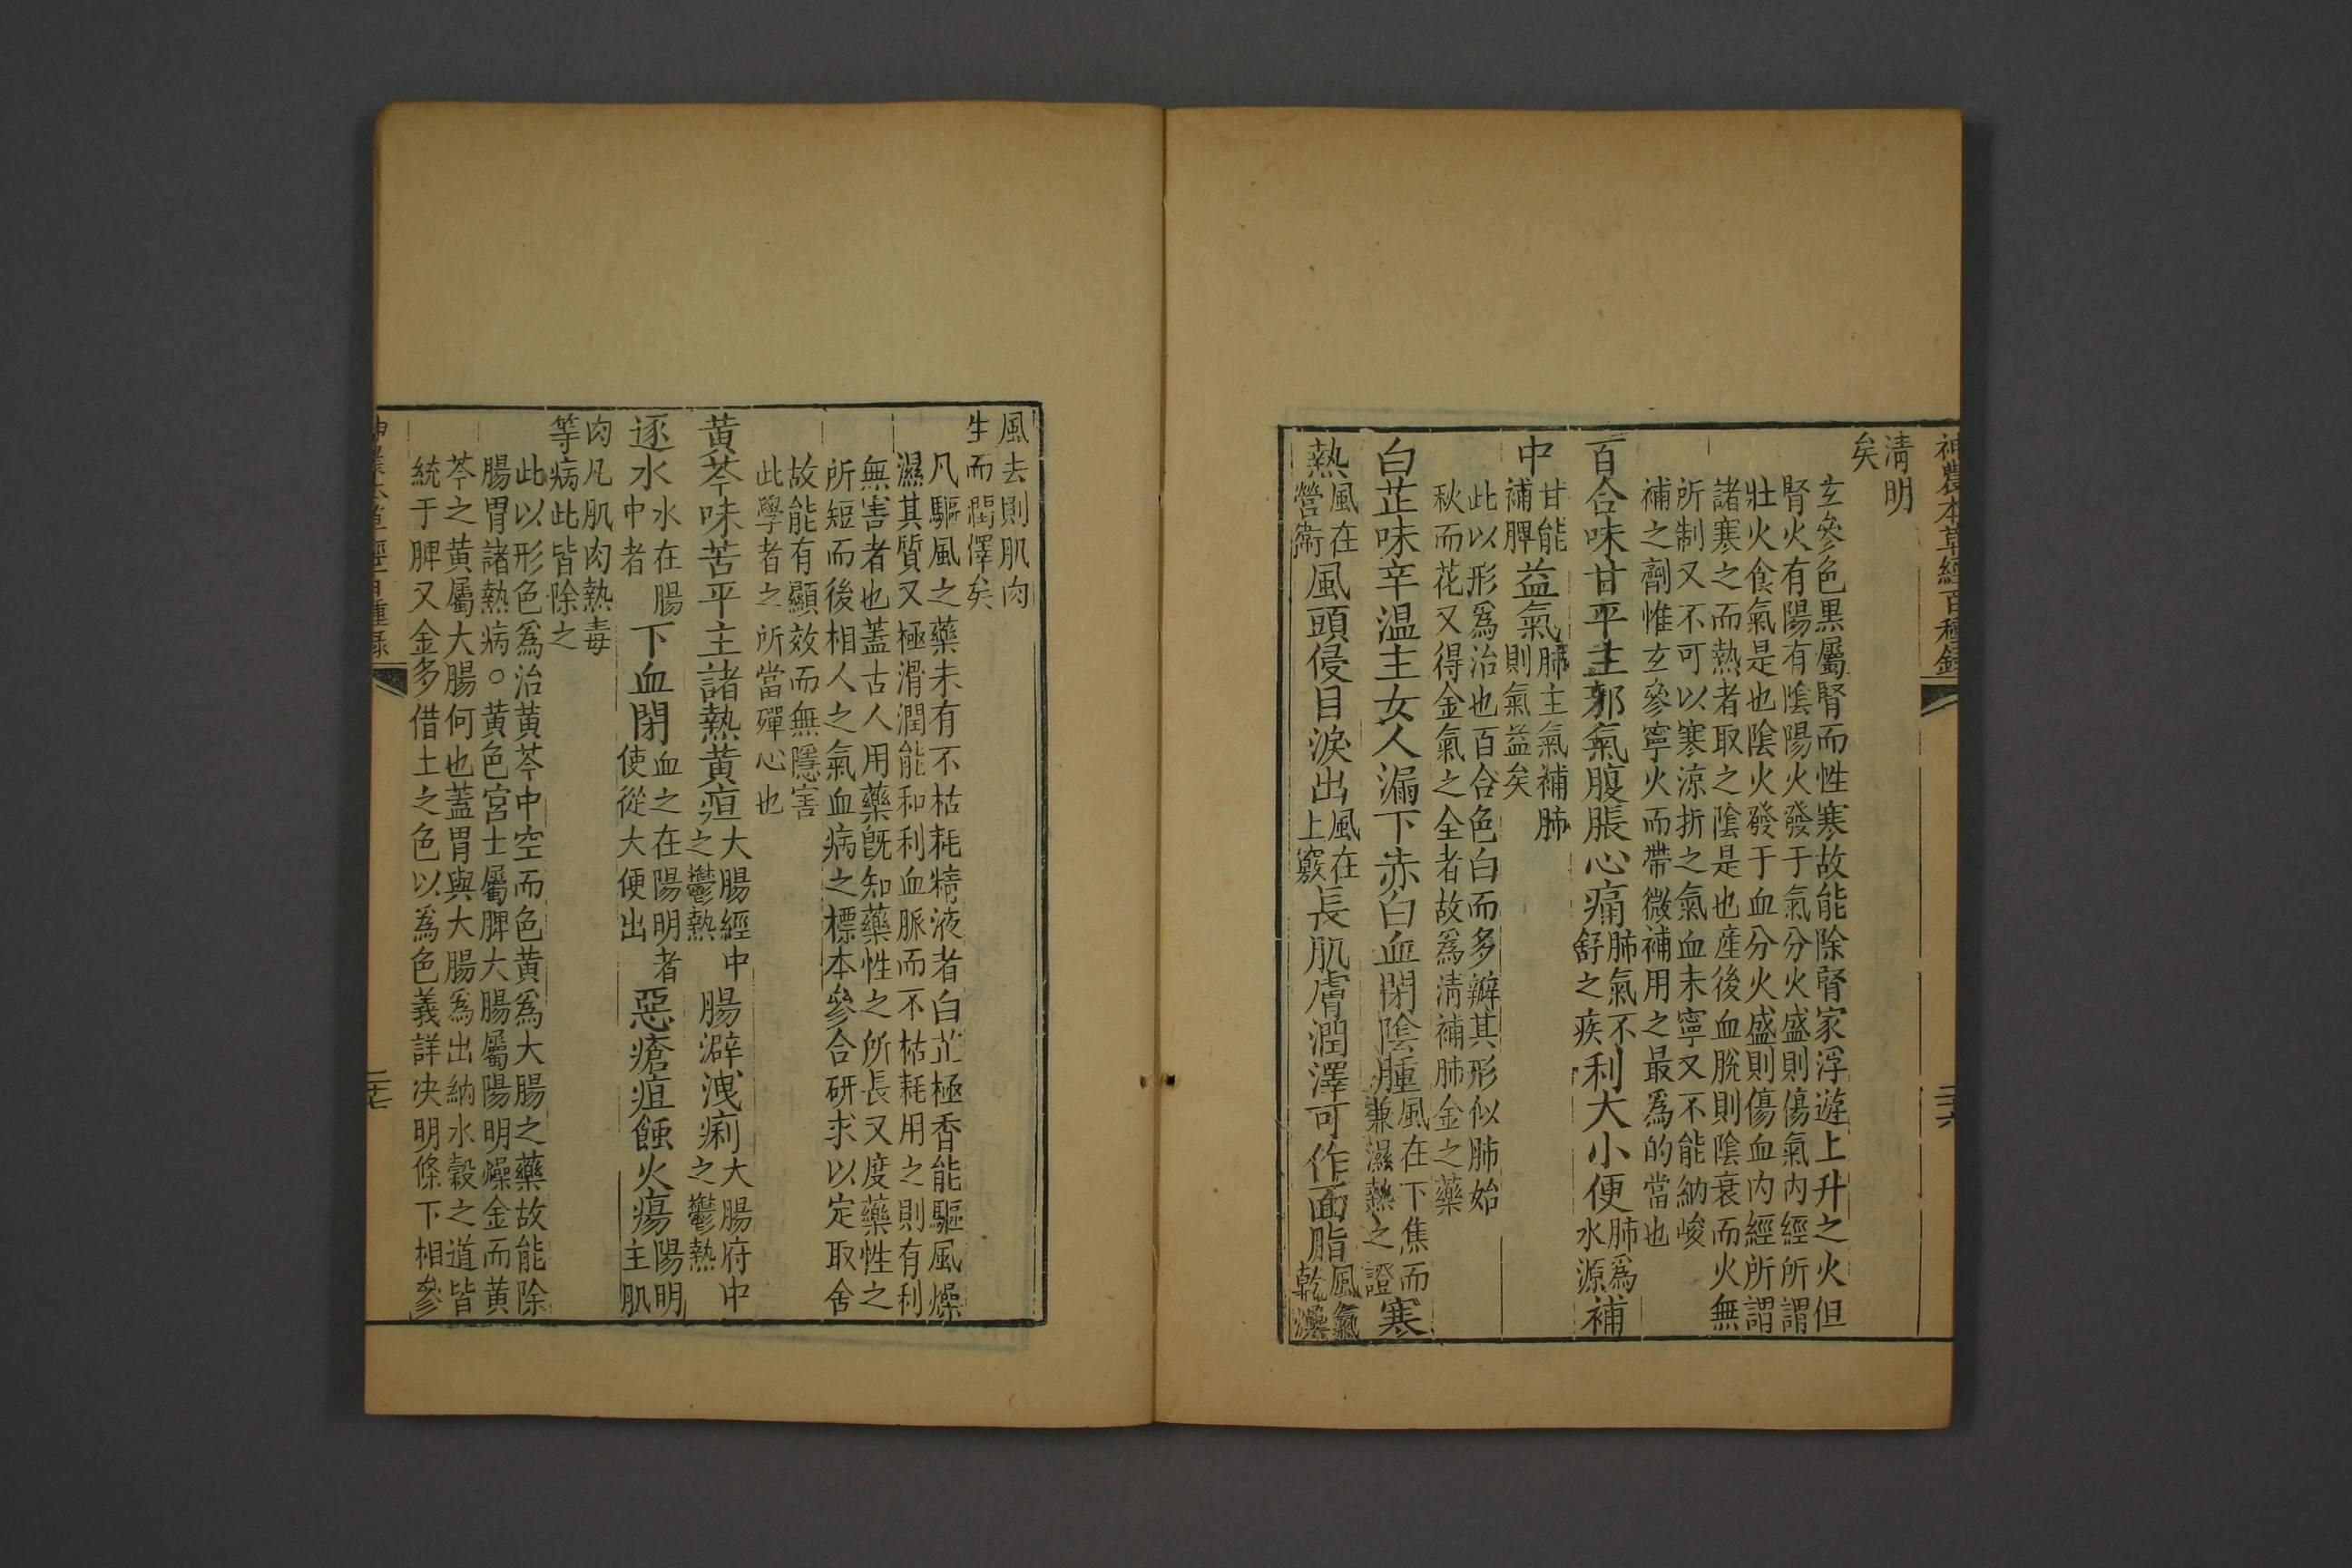 神農本草經百種錄
三六
清明
矣
玄參色黑屬腎而性寒故能除腎家浮遊上升之火但
腎火有陽有陰陽火發于氣分火盛則傷氣內經所謂
壯火食氣是也陰火發于血分火盛則傷血內經所謂
諸寒之而熱者取之陰是也産後血脫則陰衰而火無
所制又不可以寒涼折之氣血未寧又不能納峻
補之劑惟玄參寧火而帶微補用之最爲的當也
百合味甘平主邪氣腹脹心痛肺氣不舒之疾利大小便肺爲水源補
中甘能補脾益氣肺主氣補肺則氣益矣
此以形爲治也百合色白而多瓣其形似肺始
秋而花又得金氣之全者故爲清補肺金之藥
白芷味辛温主女人漏下赤白血閉陰腫風在下焦而兼濕熱之證寒
熱風在營衛風頭侵目淚出風在上竅長肌膚潤澤可作面脂風氣乾燥
風去則肌肉
生而潤澤矣
凡驅風之藥未有不枯耗精液者白芷極香能驅風燥
濕其質又極滑潤能和利血脈而不枯耗用之則有利
無害者也蓋古人用藥既知藥性之所長又度藥性之
所短而後相人之氣血病之標本參合研求以定取舍
故能有顯效而無隱害
此學者之所當殫心也
黃芩味苦平主諸熱黃疸大腸經中之鬱熱腸澼洩痢大腸府中之鬱熱
逐水水在腸中者下血閉血之在陽明者使從大便出惡瘡疽蝕火瘍陽明主肌
肉凡肌肉熱毒
等病此皆除之
此以形色爲治黃芩中空而色黃爲大腸之藥故能除
腸胃諸熱病○黃色宮土屬脾大腸屬陽明燥金而黃
芩之黃屬大腸何也蓋胃與大腸爲出納水穀之道皆
統于脾又金多借土之色以爲色義詳决明條下相參
神農本草經百種錄
三七